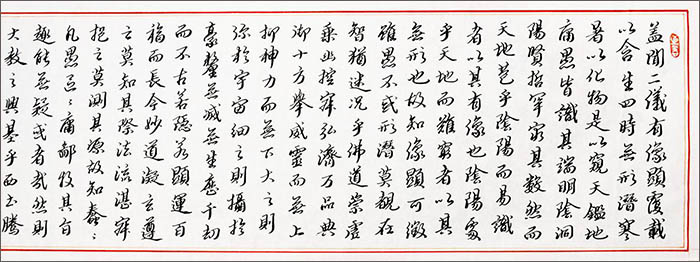 蓋聞二儀有像顯覆載
以含生四時無形潛寒
暑以化物是以窺天鑑地
庸愚皆識其端明陰洞
陽賢哲罕窮其數然而
天地苞乎陰陽而易識
者以其有像也陰陽處
乎天地而難窮者以其
無形也故知像顯可徵
雖愚不惑形潛莫覩在
智猶迷況乎佛道崇虛
乘幽控寂弘濟万品典
御十方舉威靈而無上
抑神力而無下大之則
弥於宇宙細之則攝於
豪釐無滅無生歷千劫
而不古若隱若顯運百
福而長今妙道凝玄遵
之莫知其際法流湛寂
挹之莫測其源故知蠢〻
凡愚區〻庸鄙投其旨
趣能無疑或者哉然則
大教之興基乎西土騰